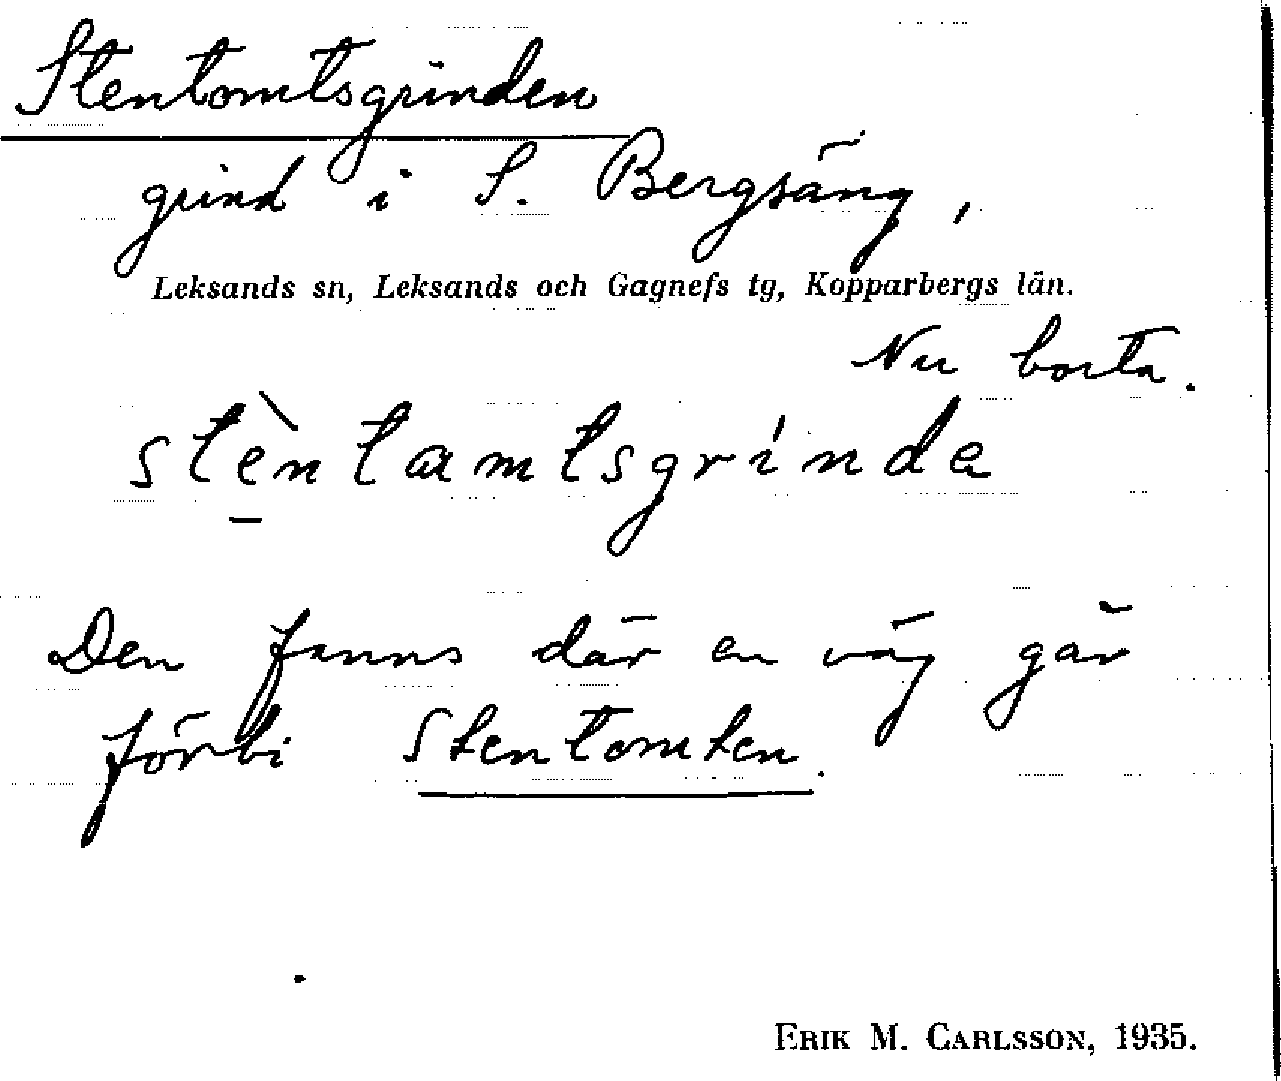 Stentomtsgrinden
grind i S. Bergsäng,
Leksands sn, Leksands och Gagnefs tg, Kopparbergs län.
Nu borta.
stè̱ntamtsgrínda
Den fanns där en väg går
förbi Stentomten.
ERIK M. CARLSSON, 1935.